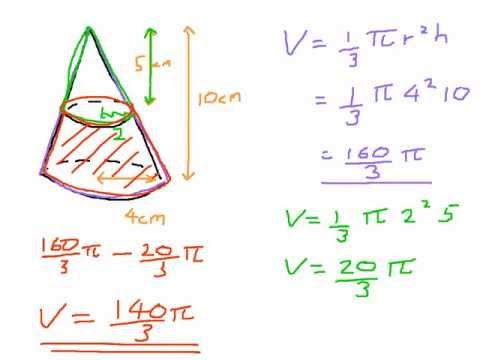 5 cm
10cm
2
4cm
V = 1/3 π r² h
= 1/3 π 4² 10
= 160/3 π
V = 1/3 π 2² 5
V = 20/3 π
160/3 π − 20/3 π
V = 140π/3